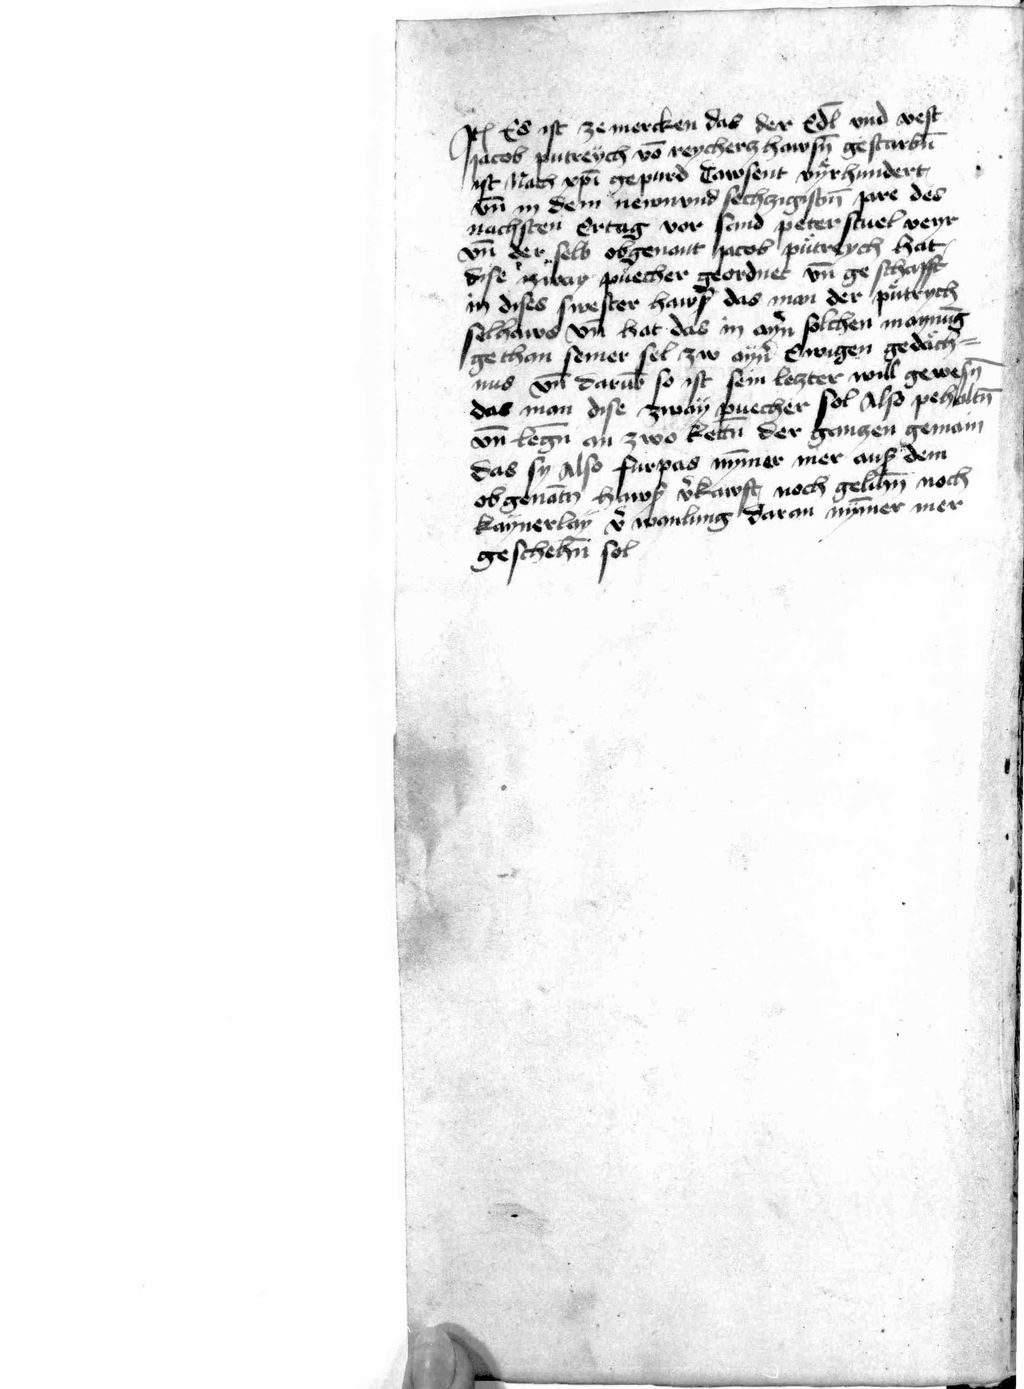 Itē Es ist ze mercken das der Edl̄ vnd vest
jacob putreych vō reycherczhawsn̄ gestarbn̄
ist Nach xp̄i gepurd Tawsent vÿrhundert
vn̄ in dem newnvnd sechzigistn̄ jare des
nachsten Ertag vor sand peter stuel veyr
vn̄ der selb obgenant jacob pütreych hat
dise zway puecher geordnet vn̄ geschafft
in dises swester hawsʒ das man der pütrych
selhaws vn̄ hat das in ayn̄ solchen maynūg
gethan seiner sel zw ayn̄ Ewigen gedäch=
nus vn̄ darūb so ist sein leczter will gewesn̄
das man dise zway puecher sol Also pehaltn̄
vn̄ legn̄ an zwo ketn̄ der ganczen gemain
das sy Also furpas nym̄er mer ausʒ dem
obgenātn̄ hawsʒ v̓kawft noch gelihn̄ noch
kaynerlay v̓wanlung daran nym̄er mer
geschehn̄ sol